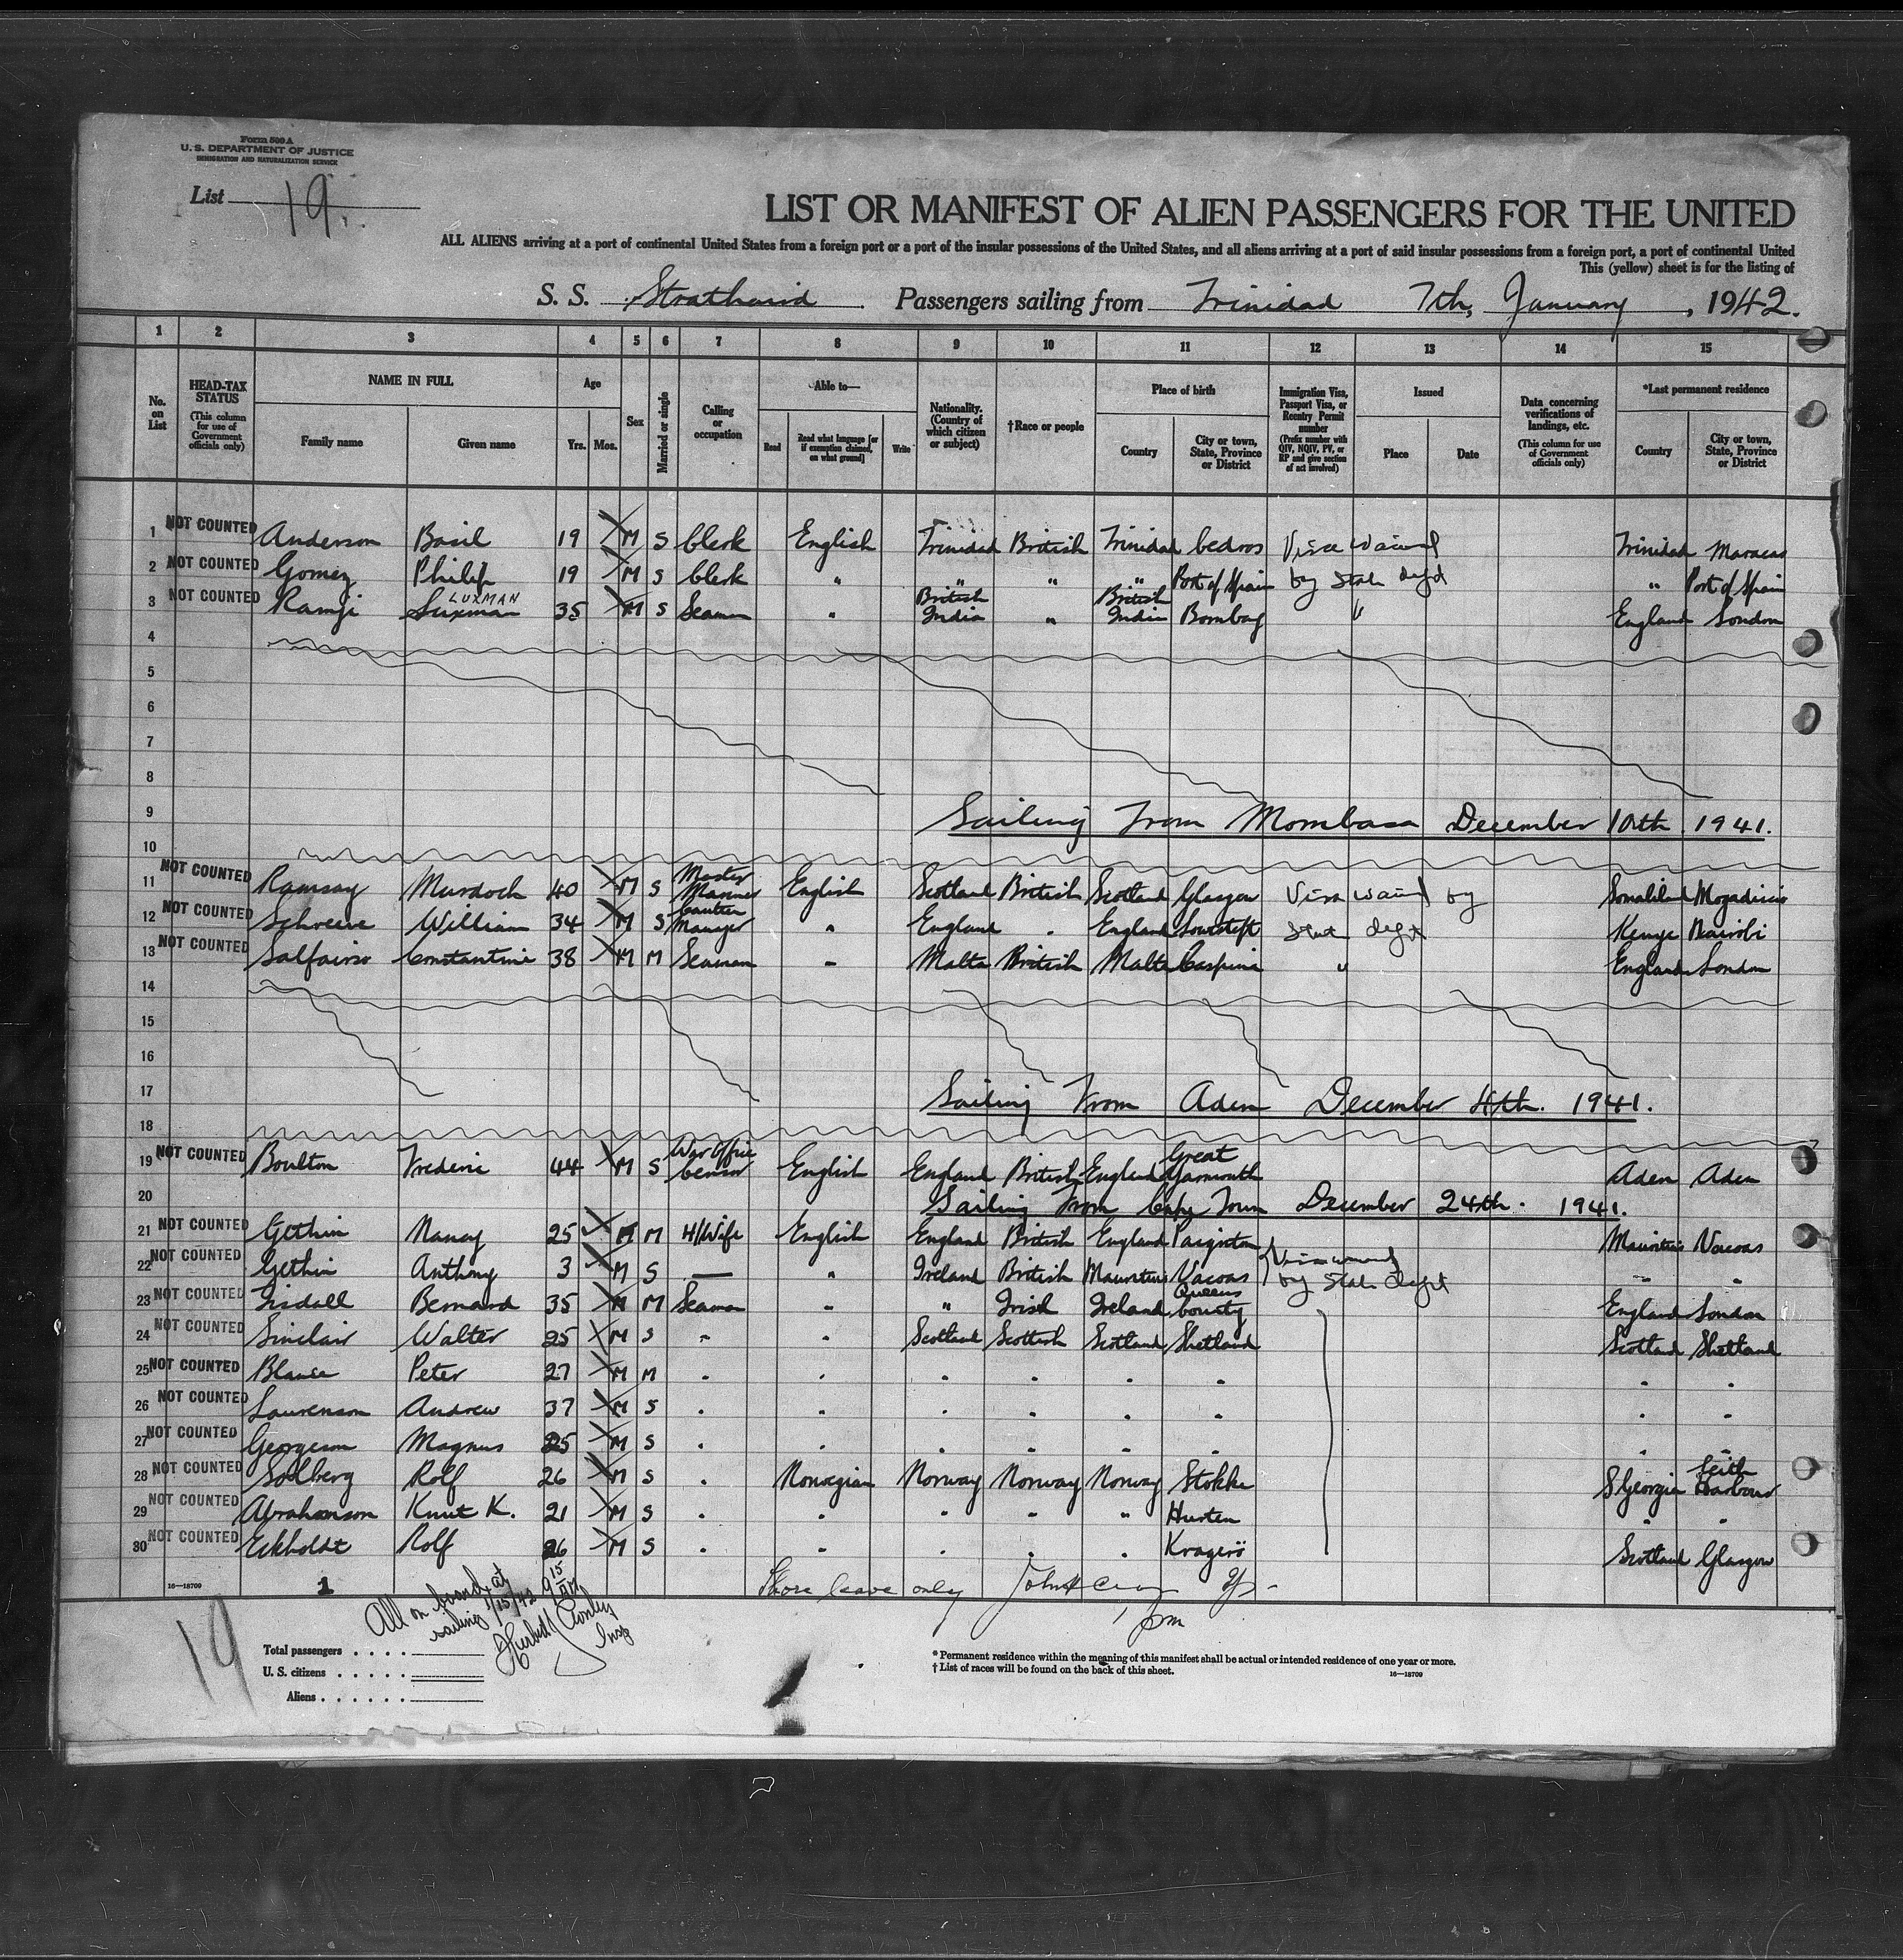 Form 500 A
U. S. DEPARTMENT OF JUSTICE
IMMIGRATION AND NATURALIZATION SERVICE
List 19.
LIST OR MANIFEST OF ALIEN PASSENGERS FOR THE UNITED
ALL ALIENS arriving at a port of continental United States from a foreign port or a port of the insular possessions of the United States, and all aliens arriving at a port of said insular possessions from a foreign port, a port of continental United
This (yellow) sheet is for the listing of
S. S. Passengers sailing from Trinidad 7th, January, 1942.
1 2 3 4 5 6 7 8 9 10 11 12 13 14 15
No. on List
HEAD-TAX STATUS (This column for use of Government officials only)
NAME IN FULL
Family name Given name
Age
Yrs. Mos.
Sex
Married or single
Calling or occupation
Able to—
Read Read what language [or if exemption claimed, on what ground] Write
Nationality. (Country of which citizen or subject)
†Race or people
Place of birth
Country City or town, State, Province or District
Immigration Visa, Passport Visa, or Reentry Permit number (Prefix number with QIV, NQIV, PV, or RP and give section of act involved)
Issued
Place Date
Data concerning verifications of landings, etc. (This column for use of Government officials only)
*Last permanent residence
Country City or town, State, Province or District
1 NOT COUNTED Anderson Basil 19 M S Clerk English Trinidad British Trinidad Cedros Visa waived Trinidad Maracas
2 NOT COUNTED Gomez Philip 19 M S Clerk " " " " Port of Spain by State Dept " Port of Spain
3 NOT COUNTED Ramji Luxman LUXMAN 35 M S Seaman " British India " British India Bombay " England London
4
5
6
7
8
9 Sailing From Mombasa December 10th. 1941.
10
11 NOT COUNTED Ramsay Murdoch 40 M S Master Mariner English Scotland British Scotland Glasgow Visa waived by Somaliland
12 NOT COUNTED William 34 M S Manager " England " England Lowestoft State Dept Kenya Nairobi
13 NOT COUNTED Constantine 38 M M Seaman " Malta British Malta " England London
14
15
16
17 Sailing From Aden December 4th. 1941.
18
19 NOT COUNTED Boulton 44 M S War Office Censor English England British England Great Yarmouth Aden Aden
20 Sailing From Cape Town December 24th. 1941.
21 NOT COUNTED Gethin Nancy 25 M H/Wife English England British England Paignton Visa waived Mauritius Vacoas
22 NOT COUNTED Gethin Anthony 3 M S — " Ireland British Mauritius Vacoas by State Dept " "
23 NOT COUNTED Bernard 35 M M Seaman " " Irish Ireland Queens County England London
24 NOT COUNTED Sinclair Walter 25 M S " " Scotland Scottish Scotland Shetland Scotland Shetland
25 NOT COUNTED Peter 27 M M " " " " " " " "
26 NOT COUNTED Laurenson Andrew 37 M S " " " " " " " "
27 NOT COUNTED Georgeson Magnus 25 M S " " " " " " " "
28 NOT COUNTED Solberg Rolf 26 M S " Norwegian Norway Norway Norway Stokke S Georgia Leith Harbour
29 NOT COUNTED Abrahamson Knut K. 21 M S " " " " " " "
30 NOT COUNTED Eckholdt Rolf 26 M S " " " " " Kragerö Scotland Glasgow
16—18709 1 Shore leave only
All on board at
sailing 1/15/42 9 15 AM
Insp
19
Total passengers
U. S. citizens
Aliens
* Permanent residence within the meaning of this manifest shall be actual or intended residence of one year or more.
† List of races will be found on the back of this sheet.
16—18709